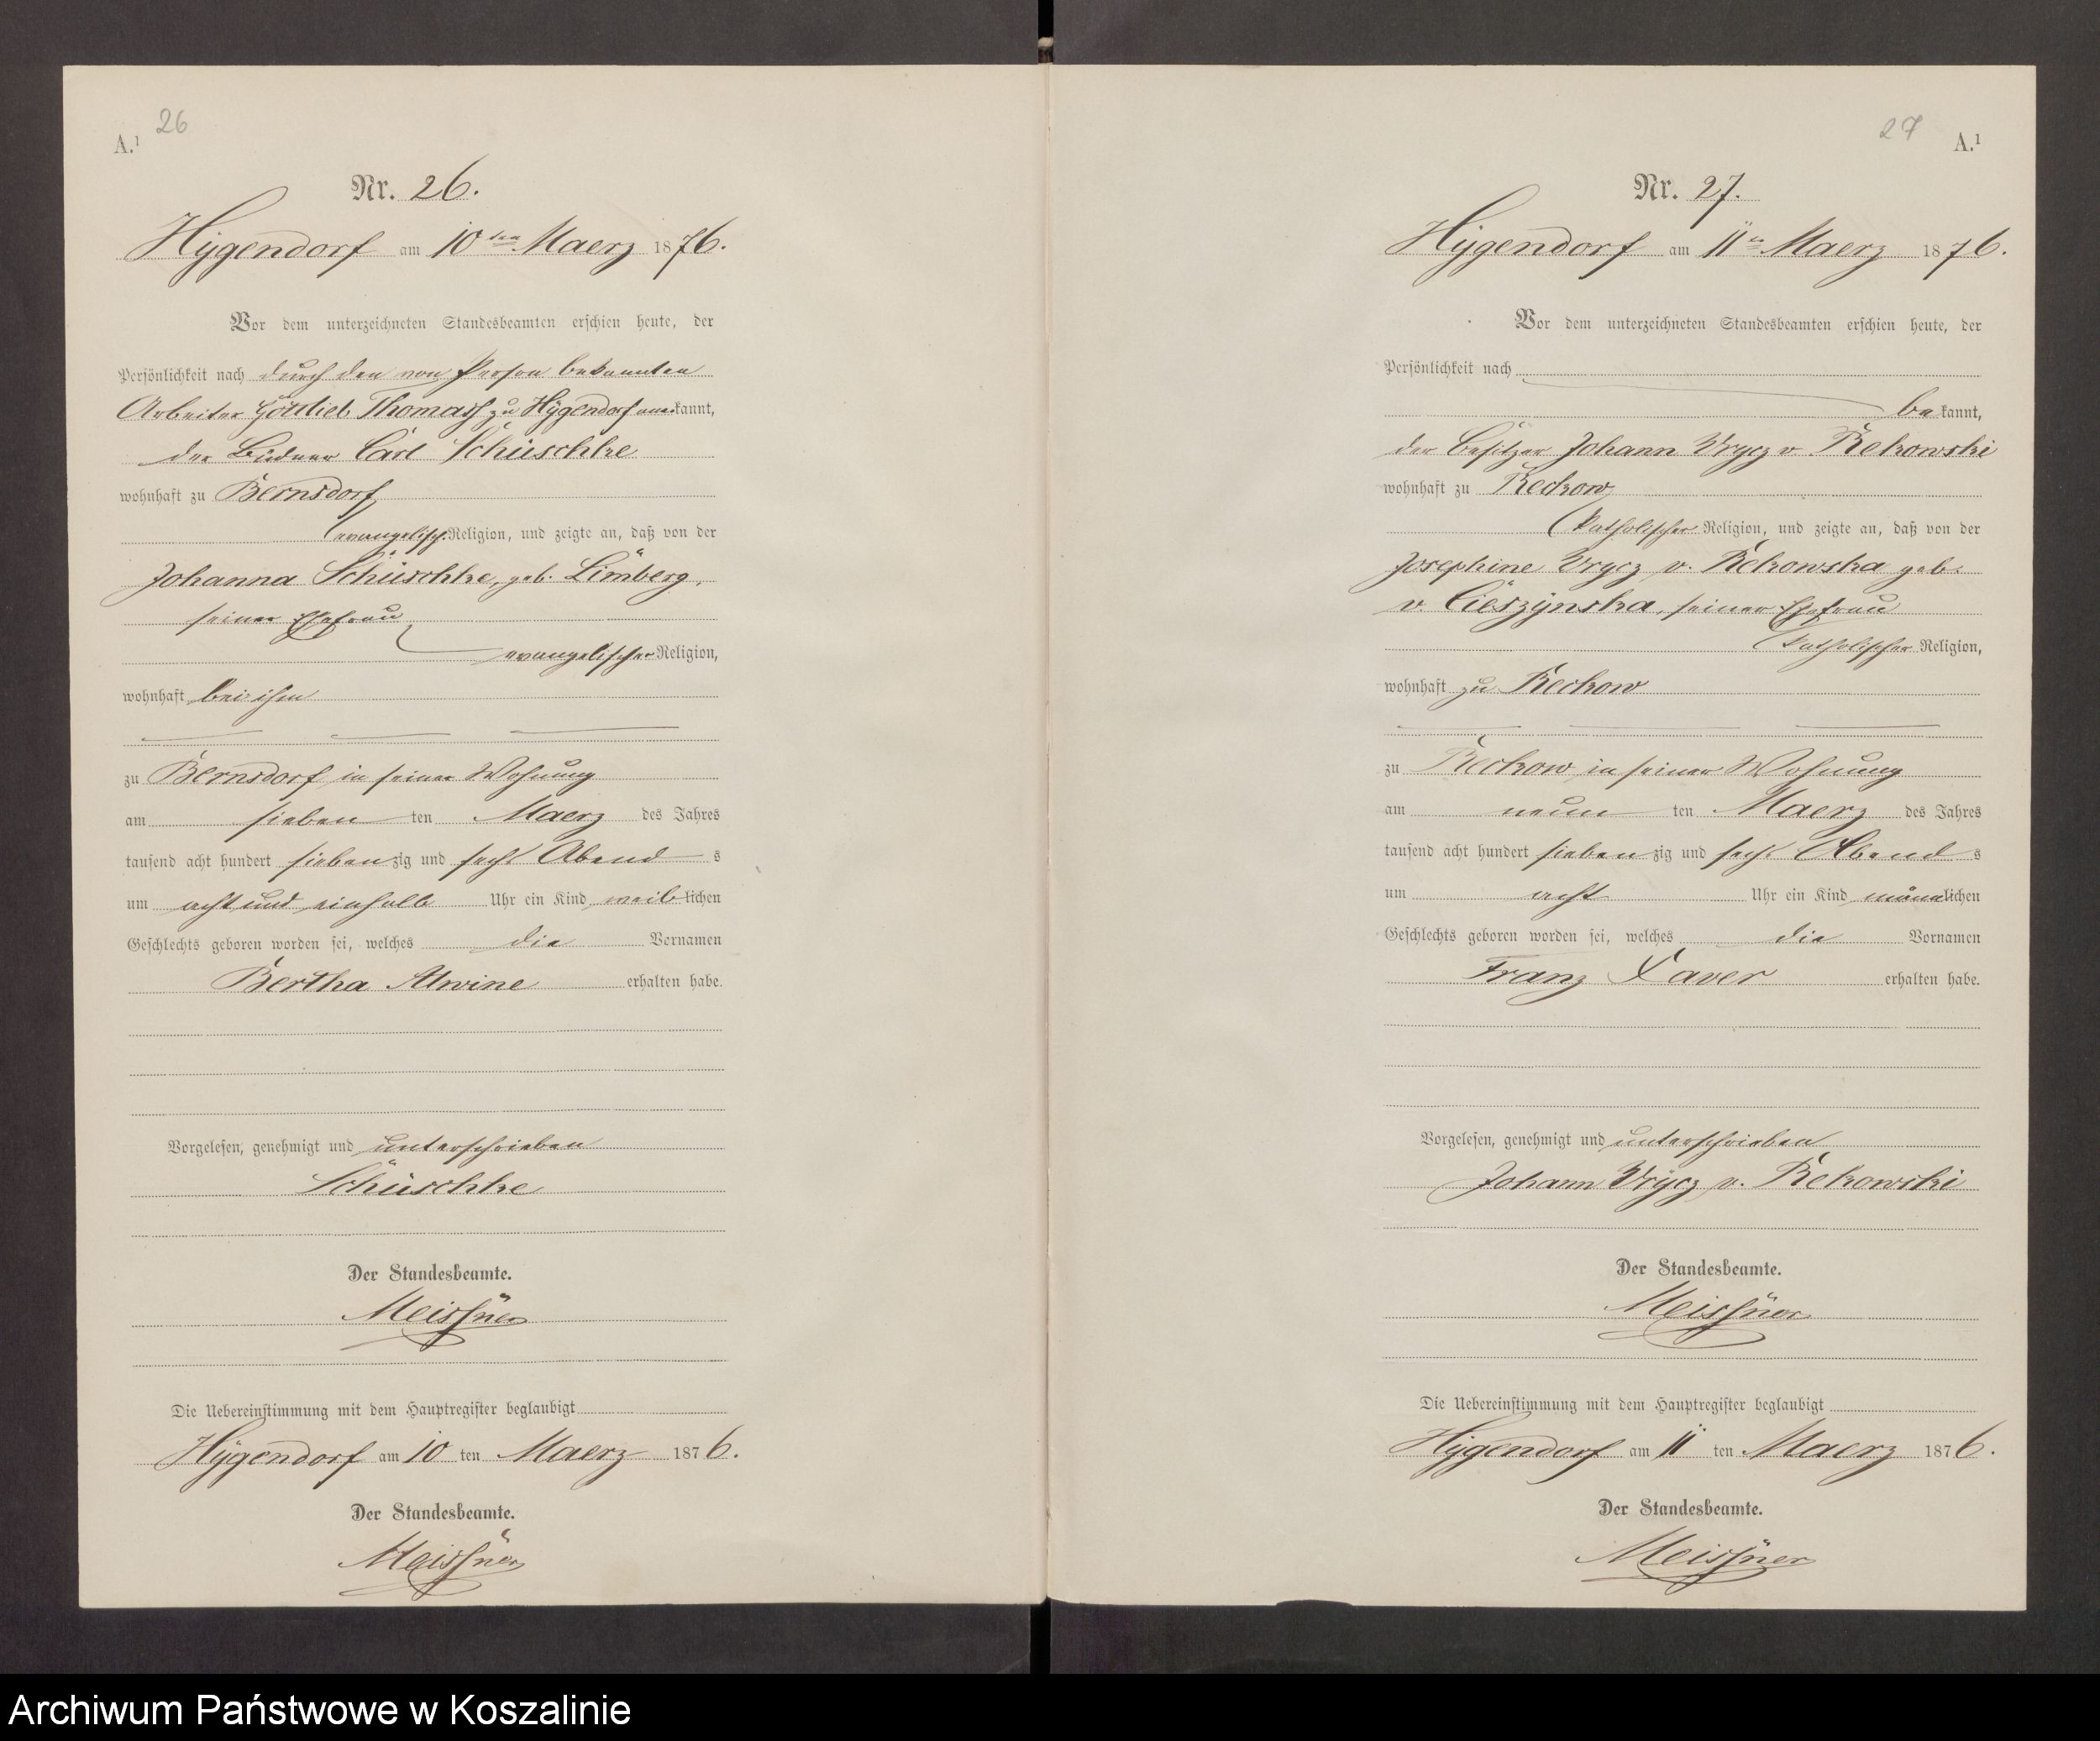 26
A.¹
Nr. 26.
Hygendorf am 10ten Maerz 1876.
Vor dem unterzeichneten Standesbeamten erschien heute, der
Persönlichkeit nach durch den von Person bekannten
Arbeiter Gottlieb Thomass zu Hygendorf anerkannt,
der Büdner Carl Schüschke
wohnhaft zu Bernsdorf
evangelisch. Religion, und zeigte an, daß von der
Johanna Schüschke, geb. Limberg,
seiner Ehefrau
evangelischer Religion,
wohnhaft bei ihm
zu Bernsdorf in seiner Wohnung
am sieben ten Maerz des Jahres
tausend acht hundert sieben zig und sechs Abend s
um acht und einhalb Uhr ein Kind weib lichen
Geschlechts geboren worden sei, welches die Vornamen
Bertha Alwine erhalten habe.
Vorgelesen, genehmigt und unterschrieben
Schüschke
Der Standesbeamte.
Meissner
Die Uebereinstimmung mit dem Hauptregister beglaubigt
Hygendorf am 10 ten Maerz 1876.
Der Standesbeamte.
Meissner
27
A.¹
Nr. 27.
Hygendorf am 11ten Maerz 1876.
Vor dem unterzeichneten Standesbeamten erschien heute, der
Persönlichkeit nach
be kannt,
der Besitzer Johann Wrycz v Rekowski
wohnhaft zu Reckow
katholischer Religion, und zeigte an, daß von der
Josephine Wrycz v. Rekowska geb.
v. Cieszynska, seiner Ehefrau
katholischer Religion,
wohnhaft zu Reckow
zu Reckow in seiner Wohnung
am neun ten Maerz des Jahres
tausend acht hundert sieben zig und sechs Abend s
um acht Uhr ein Kind männlichen
Geschlechts geboren worden sei, welches die Vornamen
Franz Xaver erhalten habe.
Vorgelesen, genehmigt und unterschrieben
Johann Wrycz v. Rekowski
Der Standesbeamte.
Meissner
Die Uebereinstimmung mit dem Hauptregister beglaubigt
Hygendorf am 11 ten Maerz 1876.
Der Standesbeamte.
Meissner
Archiwum Państwowe w Koszalinie